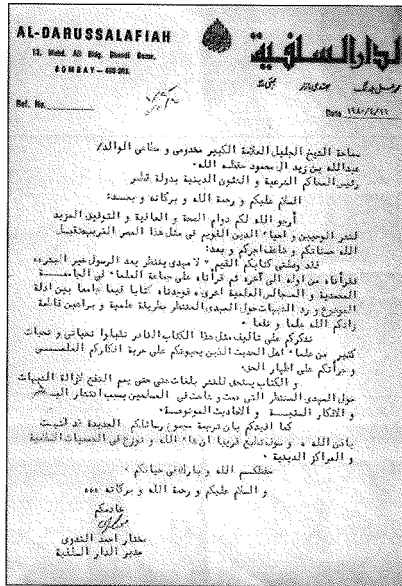 AL-DARUSSALAFIAH
الدار السلفية
13, Mohd. Ali Bldg. Bhendi Bazar,
BOMBAY - 400 003.
Ref. No.
Date ١٩٨٠/٤/١٦
سماحة الشيخ الجليل العلامة الكبير مخدومي و مطاعي الوالد/
عبدالله بن زيد آل محمود حفظه الله
رئيس المحاكم الشرعية و الشئون الدينية بدولة قطر
السلام عليكم و رحمة الله و بركاته و بعد:
أرجو الله لكم دوام الصحة و العافية و التوفيق المزيد
لنشر الوحيين و احياء الدين القويم في مثل هذا العصر الغريب تقبل
الله حسناتكم و ضاعف اجركم و بعد:
فقد وصلني كتابكم القيم " لا مهدي ينتظر بعد الرسول خير البشر"
فقرأناه من اوله الى آخره ثم قرأناه على جماعة العلماء في الجامعة
المحمدية و المجالس العلمية اخرى فوجدناه كتابا قيما جامعا بين ادلة
الموضوع و رد الشبهات حول المهدي المنتظر بطريقة علمية و براهين قاطعة
زادكم الله علما و فضلا
نشكركم على تأليف مثل هذا الكتاب النادر تقبلوا تحياتي و تحيات
كثير من علماء اهل الحديث الذين يحيونكم على حرية افكاركم العلمية
و جرأتكم على اظهار الحق
و الكتاب يستحق للنشر بلغات شتى حتى يعم النفع لازالة الشبهات
حول المهدي المنتظر التي دست و شاعت في المسلمين بسبب انتشار
و الافكار و الاحاديث الموضوعة
كما افيدكم بان ترجمة مجموع رسائلكم العديدة قد انتهت
باذن الله و سوف تطبع قريبا ان شاء الله و توزع في الجمعيات السلفية
و المراكز الدينية
حفظكم الله و بارك في حياتكم
و السلام عليكم و رحمة الله و بركاته
خادمكم
مختار احمد الندوي
مدير الدار السلفية